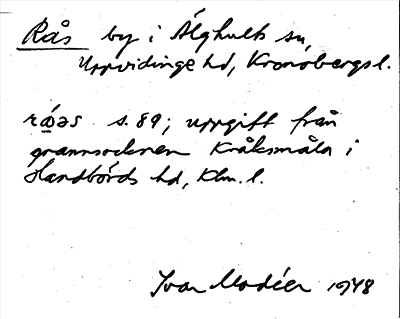 Rås by i Älghults sn,
Uppvidinge hd, Kronobergs l.
råəs s. 89; uppgift från
grannsocknen Kråksmåla i
Handbörds hd, Klm. l.
Ivar Modéer 1948